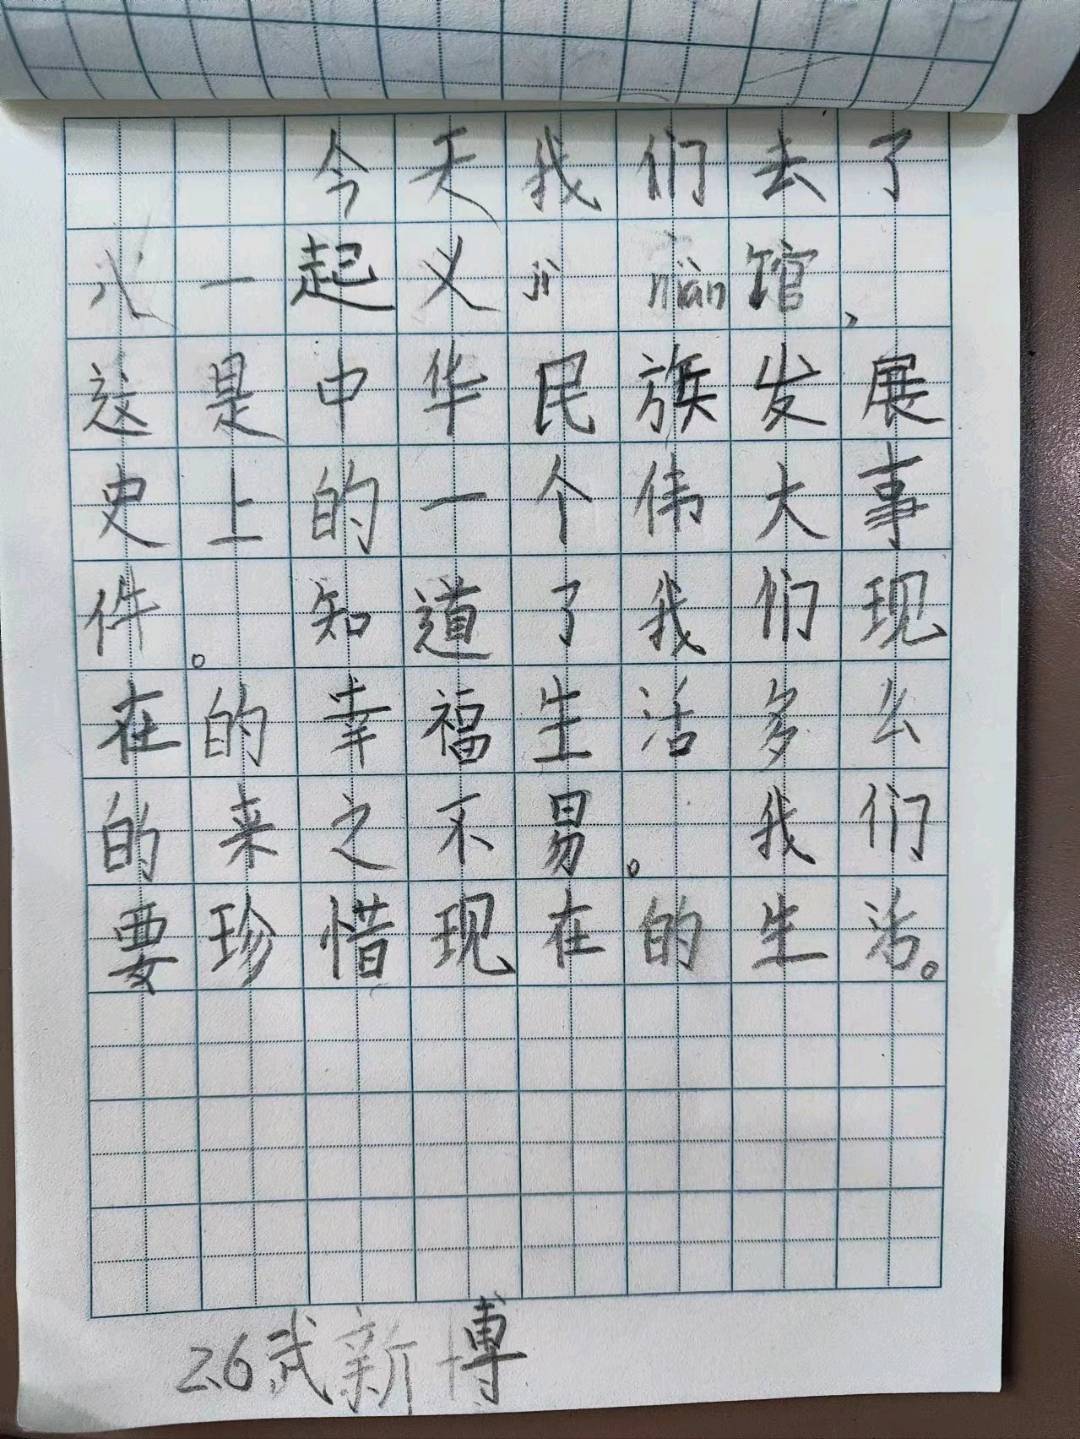 今天我们去了
八一起义jì niàn馆,
这是中华民族发展
史上的一个伟大事
件。知道了我们现
在的幸福生活多么
的来之不易。我们
要珍惜现在的生活。
2.6武新博